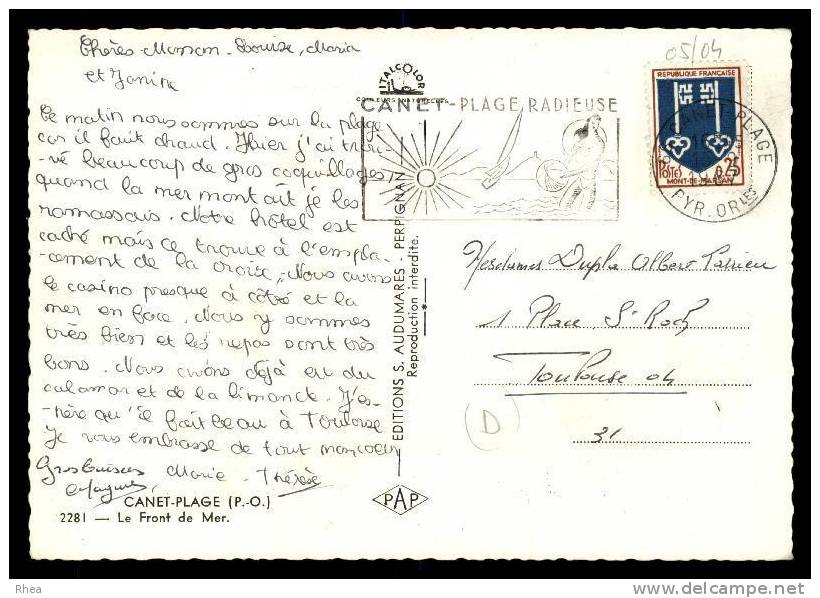 Chères Maman - Louise, Maria
et Janine
Ce matin nous sommes sur la plage
car il fait chaud. Hier j'ai trou-
-vé beaucoup de gros coquillages,
quand la mer montait je les
ramassais. Notre hôtel est
caché mais se trouve à l'empla-
-cement de la croise. Nous avons
le casino presque à côté et la
mer en face. Nous y sommes
très bien et les repas sont très
bons. Nous avons déjà eu du
calamar et de la limande. J'es-
-père qu'il fait beau à Toulouse
Je vous embrasse de tout mon coeur
Gros baisers Marie - Thérèse
CANET-PLAGE (P.-O.)
2281 — Le Front de Mer.
EDITIONS S. AUDUMARES - PERPIGNAN
Reproduction interdite.
ITALCOLOR
COULEURS NATURELLES
CANET-PLAGE RADIEUSE
05/04
REPUBLIQUE FRANÇAISE
0,25
POSTES
MONT-DE-MARSAN
CANET-PLAGE
PYR. ORLES
Mesdames Dupla Albert
1 Place St Roch
Toulouse 04
31
D
PAP
Rhea
delcampe.net